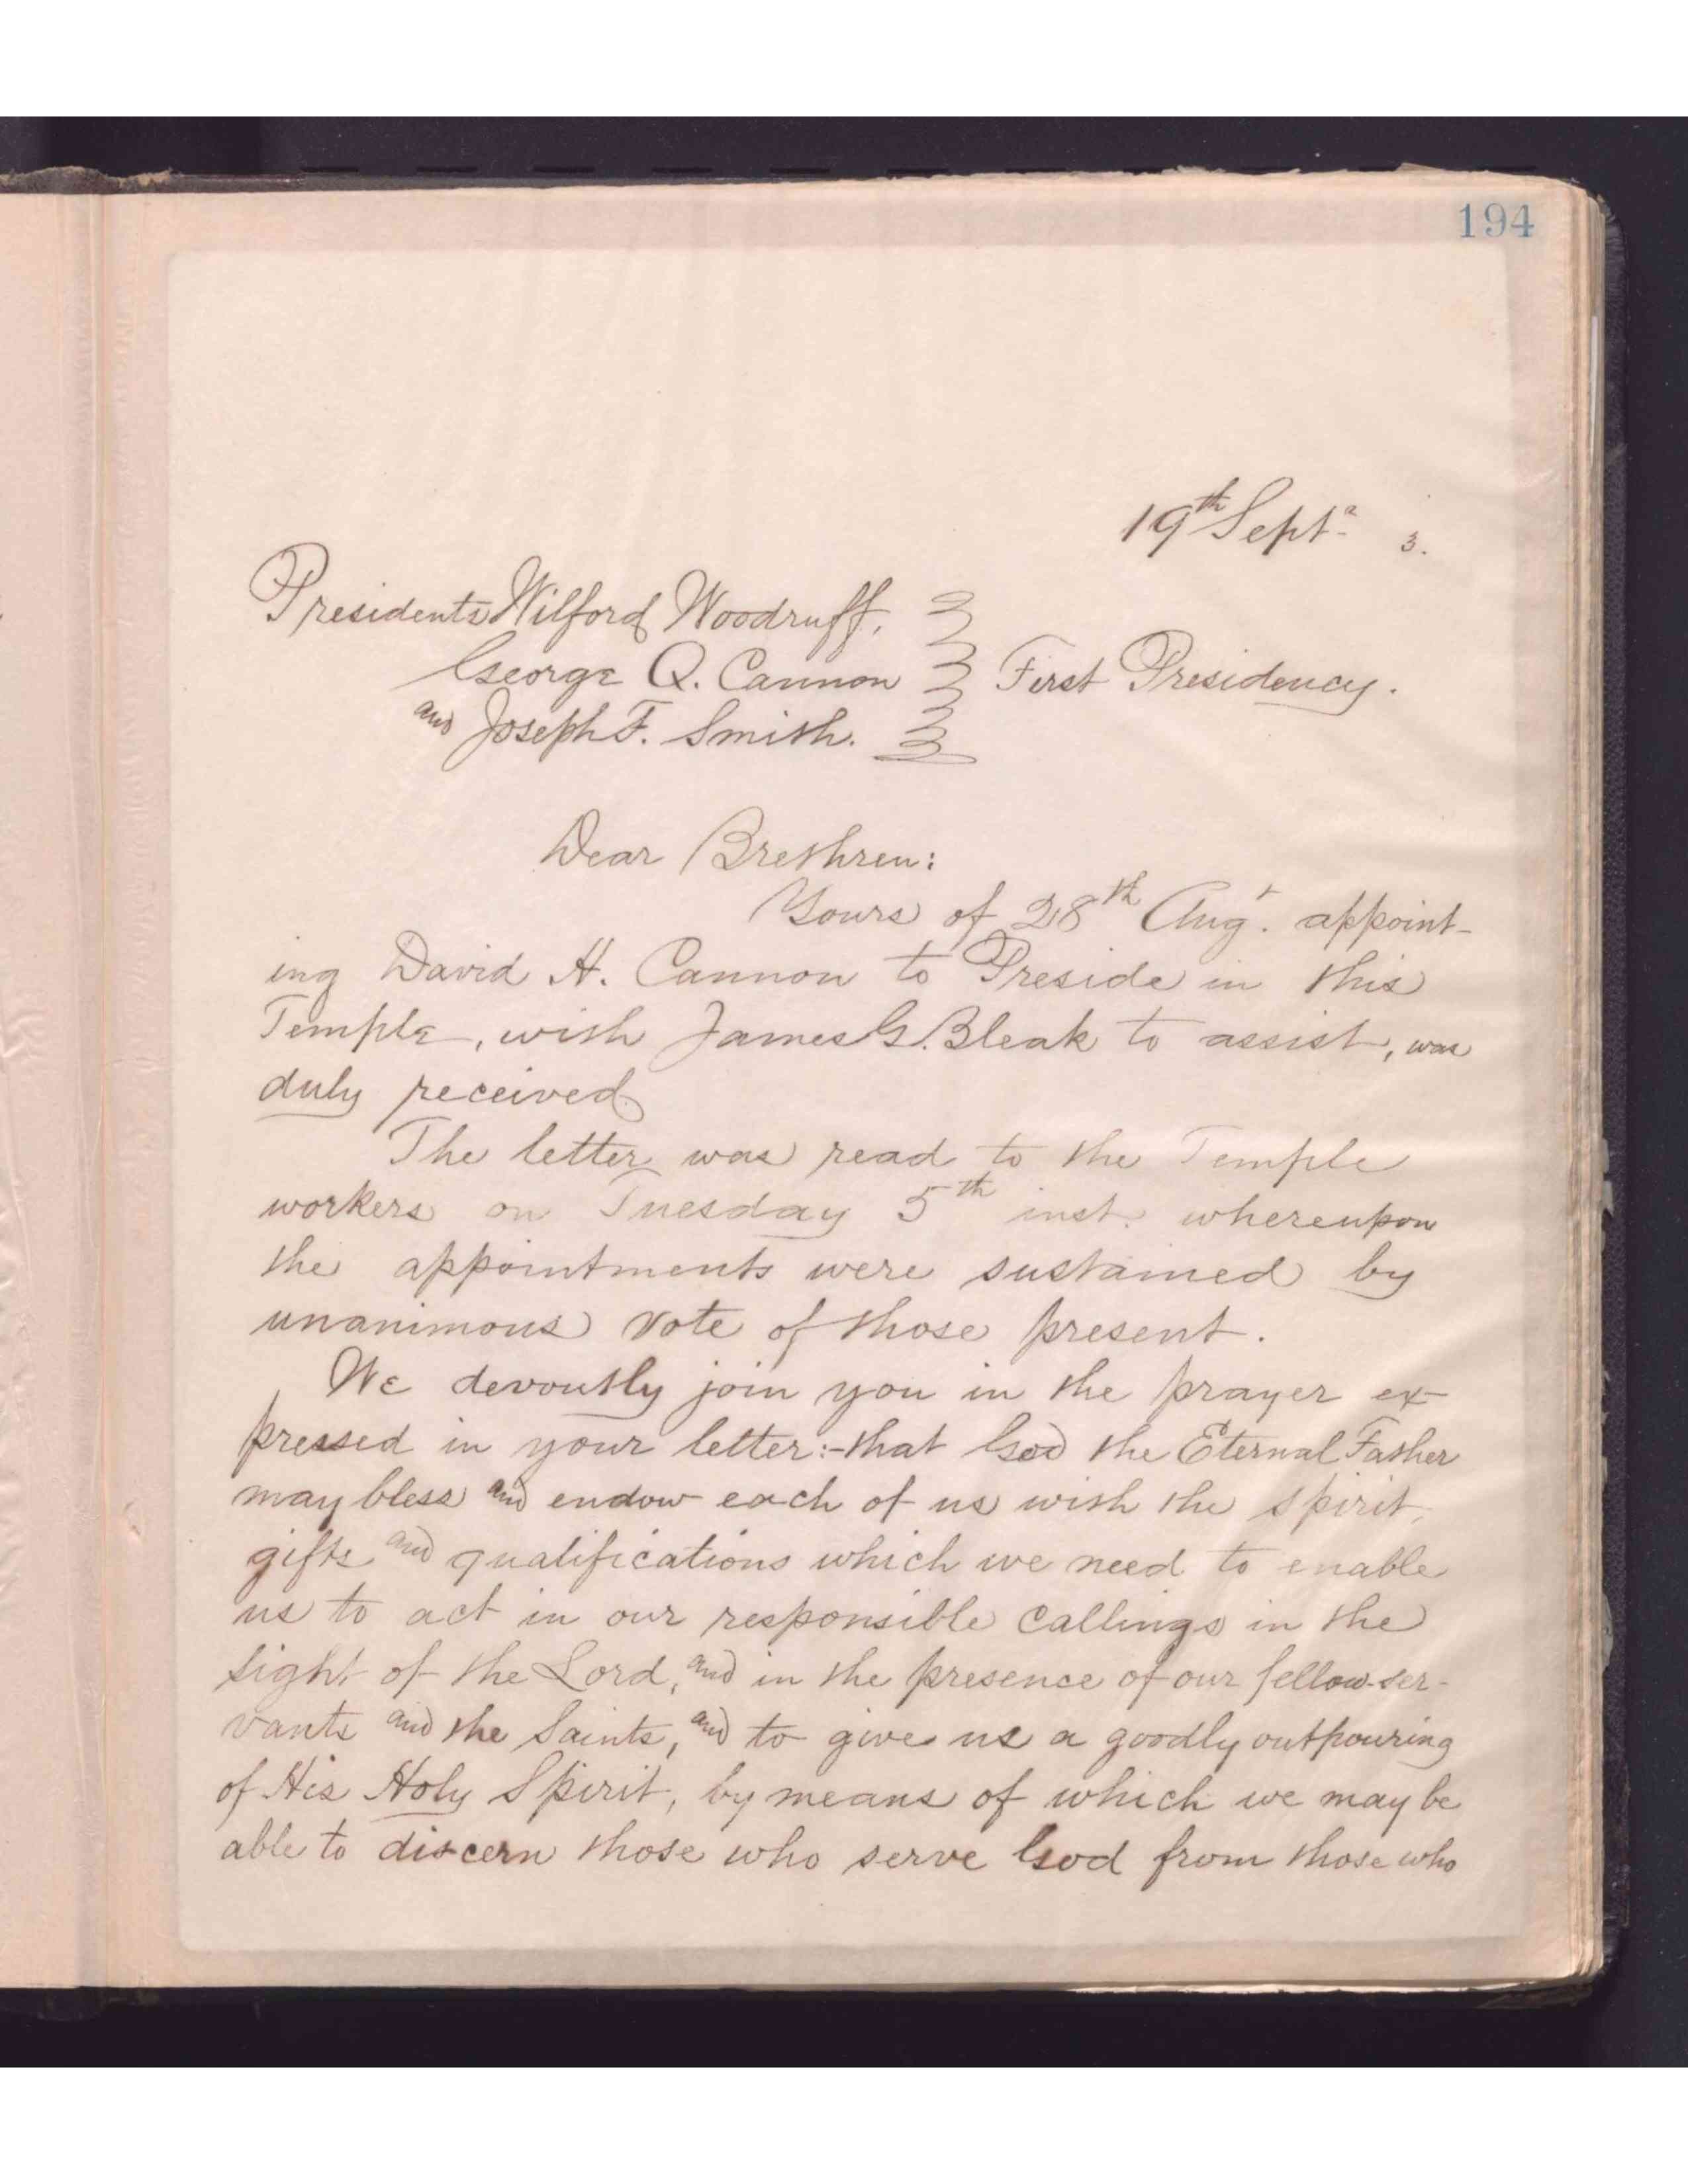 194
19th Septr 3.
Presidents Wilford Woodruff,
George Q. Cannon First Presidency.
and Joseph F. Smith.
Dear Brethren:
Yours of 28th Augt. appoint-
ing David H. Cannon to Preside in this
Temple, with James G. Bleak to assist, was
duly received
The letter was read to the Temple
workers on Tuesday 5th inst. whereupon
the appointments were sustained by
unanimous vote of those present.
We devoutly join you in the prayer ex-
pressed in your letter:-that God the Eternal Father
may bless and endow each of us with the spirit,
gifts and qualifications which we need to enable
us to act in our responsible callings in the
sight of the Lord, and in the presence of our fellow-ser-
vants and the Saints, and to give us a goodly outpouring
of His Holy Spirit, by means of which we may be
able to discern those who serve God from those who